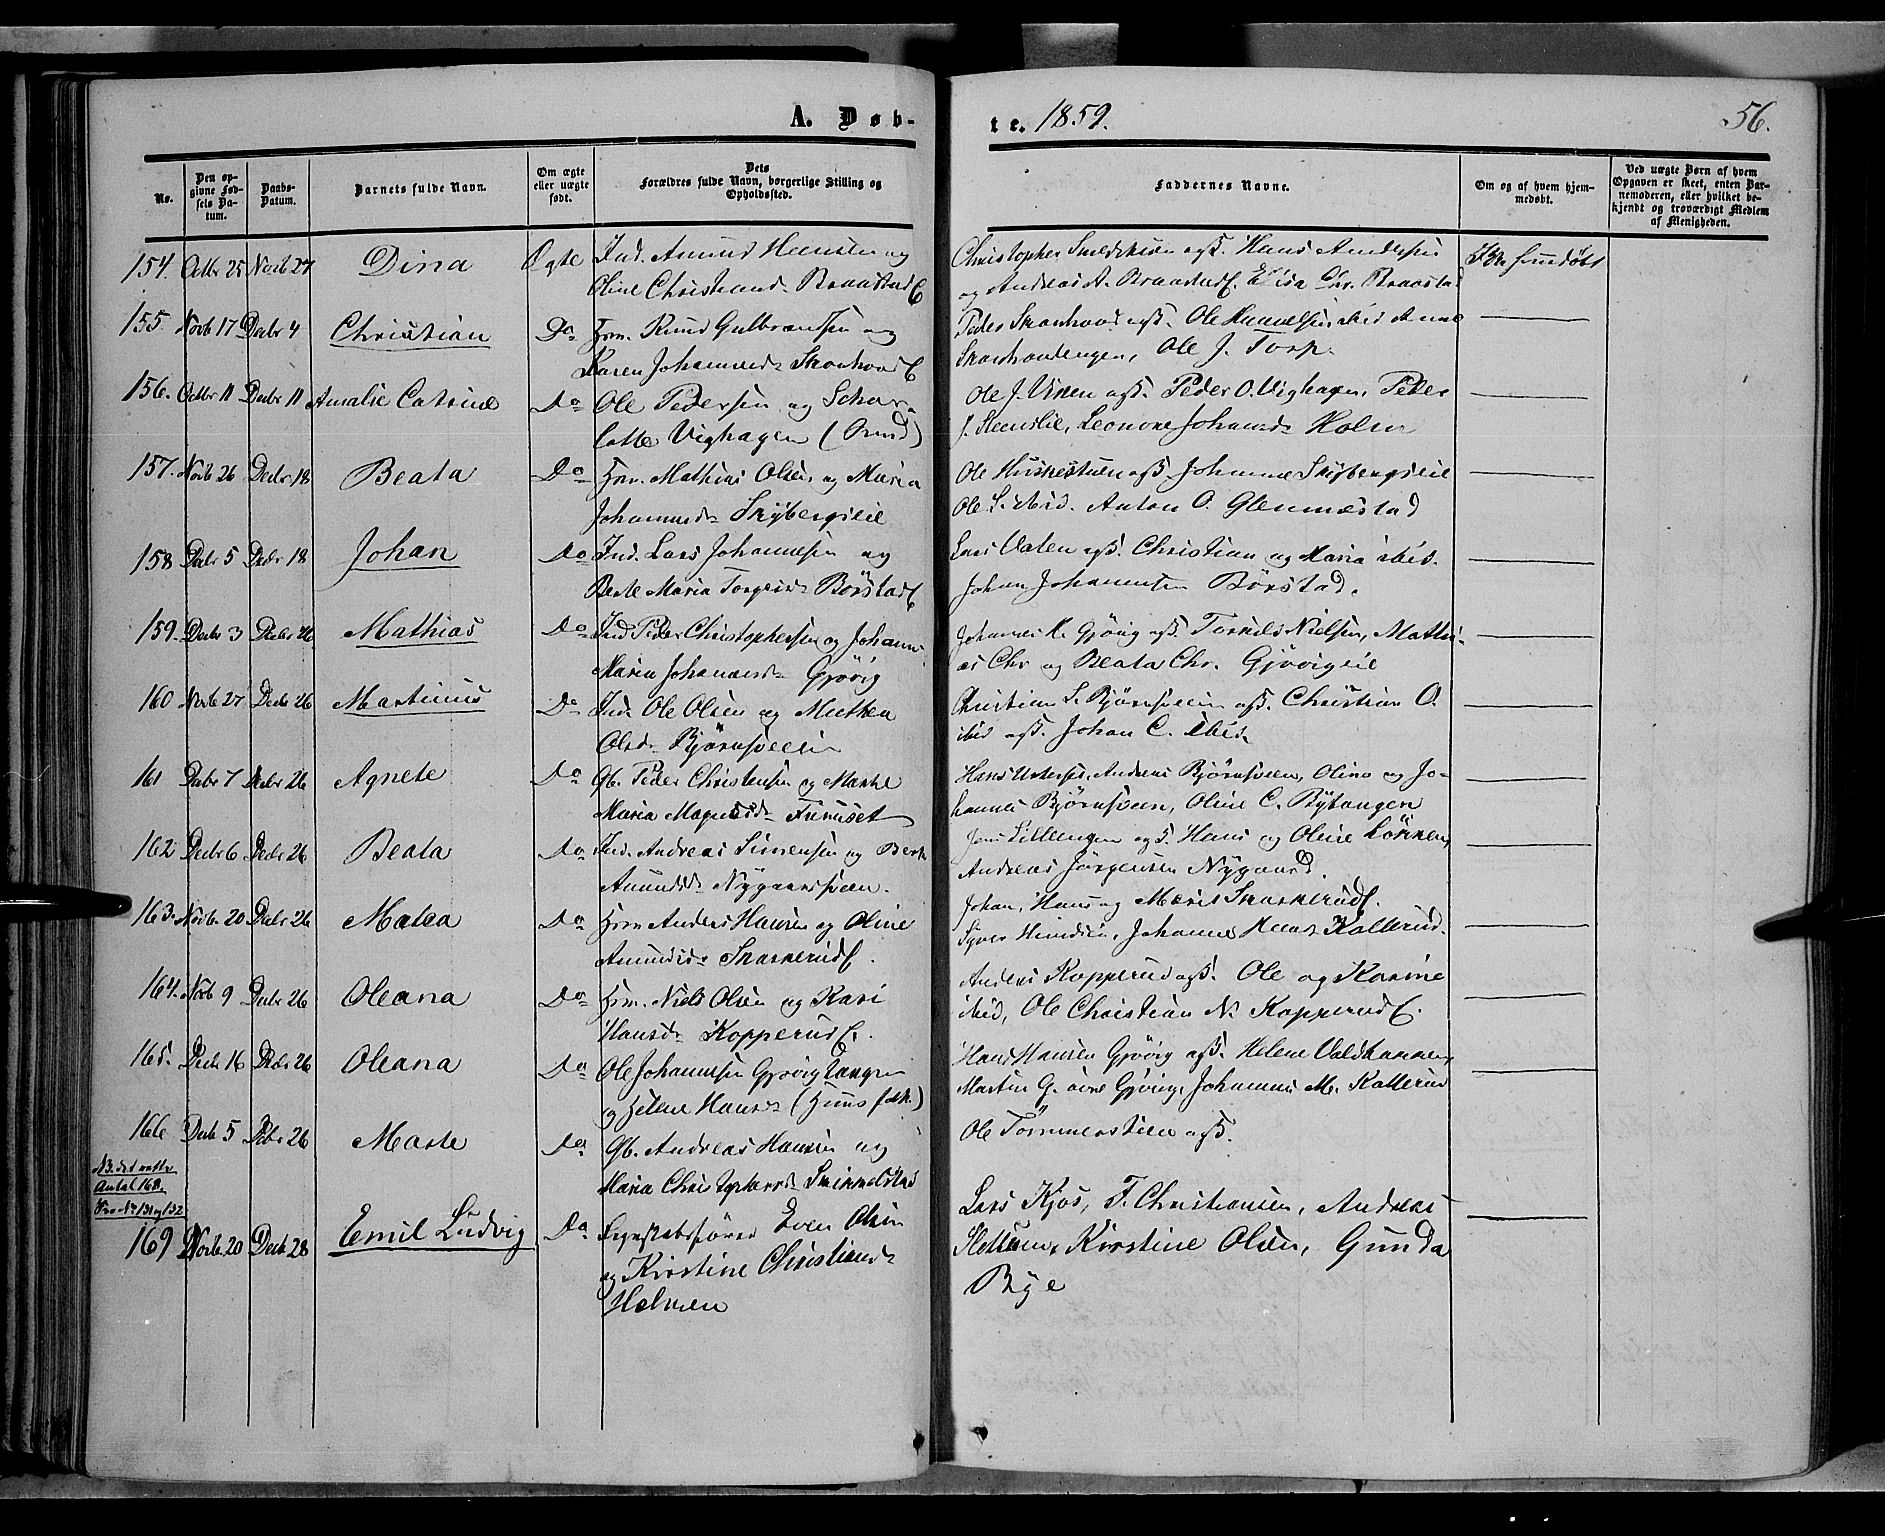 A. Døb-
te. 1859.
56.
No.
Den op-
givne Fød-
sels Da-
tum.
Daabs-
Datum.
Barnets fulde Navn.
Om ægte
eller uægte
født.
Dets
Forældres fulde Navn, borgerlige Stilling og
Opholdssted.
Faddernes Navne.
Om og af hvem hjem-
medøbt.
Ved uægte Børn af hvem
Opgaven er skeet, enten Bar-
nemoderen, eller hvilket be-
kjendt og troværdigt Medlem
af Menigheden.
154. Octbr 25 Novb 27 Dina Ægte Ind. Amund Hansen og
Oline Christiansd. Braastad
Christopher agst. Hans Andersen
og Andreas A. Braastad. Chr. Braastad
Ikke hjemdøbt
155 Novb 17 Decbr 4 Christian Do Hrm. Knud Gulbransen og
Karen Johannesd. Skonhovd
Peder Skonhovd agst. Ole ibid
Skonhovdengen, Ole J. Torp.
156. Octbr 11 Decbr 11 Amalie Catrine Do Ole Pedersen og Schar-
lotte Vighagen
Ole J. Viken agst. Peder O. Vighagen, Peder
J. Leonore Johannesd. Holen
157. Novb 26 Decbr 18 Beata Do Hrm. Mathias Olsen og Maria
Johannesd. Skybergseie
Ole agst. Johanne Skybergseie
Ole S. ibid. Anton O. Glæmmestad
158 Decbr 5 Decbr 18 Johan Do Ind. Lars Johannesen og
Berte Maria Torgersd. Børstad
Lars agst. Christian og Maria ibid.
Johan Johannesen Børstad.
159. Decbr 3 Decbr 26 Mathias Do Ind. Peder Christophersen og Johanne
Maria Johannesd. Gjøvig
Johannes H. Gjøvig agst. Nielsen, Mathi-
as Chr og Beata Chr. Gjøvigeie
160 Novb 27 Decbr 26 Martinus Do Ind. Ole Olsen og
Olsd. Bjørnsveen
Christian S. Bjørnsveen agst. Christian O.
ibid agst. Johan C. ibid.
161 Decbr 7 Decbr 26 Agnete Do Gb. Peder Christensen og Marthe
Maria Magnusd. Furuset
Hans Andreas Bjørnsveen, Oline og Jo-
hannes Bjørnsveen, Oline C. Bybangen
162 Decbr 6 Decbr 26 Beata Do Ind. Andreas Simensen og Berthe
Amundsd. Nygaardsveen.
Jens agst. Hans og Oline Løkken,
Andreas Jørgensen Nygaard.
163. Novb 20 Decbr 26 Matea Do Hrm Anders Hansen og Oline
Amundsd. Skarkerud.
Johan, Hans og Skarkerud.
Syver Johanne Kallerud.
164. Novb 9 Decbr 26 Oleana Do Hrm. Niels Olsen og Kari
Hansd. Kopperud.
Anders Kopperud agst. Ole og Karine
ibid, Ole Christian N. Kopperud.
165. Decb 16 Decbr 26 Oleana Do Ole Johannesen Gjøvigtangen
og Helene Hansd. (Huusfolk)
Hans Hansen Gjøvig agst. Helene
Martin G. Gjøvig, Johannes M. Kallerud
166 Decb 5 Decbr 26 Marte Do Gb. Andreas Hansen og
Maria Christophersd. Skikkelstad
Ole Tømmerstuen agst.
NB. det rette
Antal 168.
Nr 131 og 132
169 Novb 20 Decb 28 Emil Ludvig Do Regnskabsfører Even Olsen
og Kirstine Christiansd.
Holmen
Lars Kjos, F. Christiansen, Andreas
Kirstine Olsen, Gunda
Bye